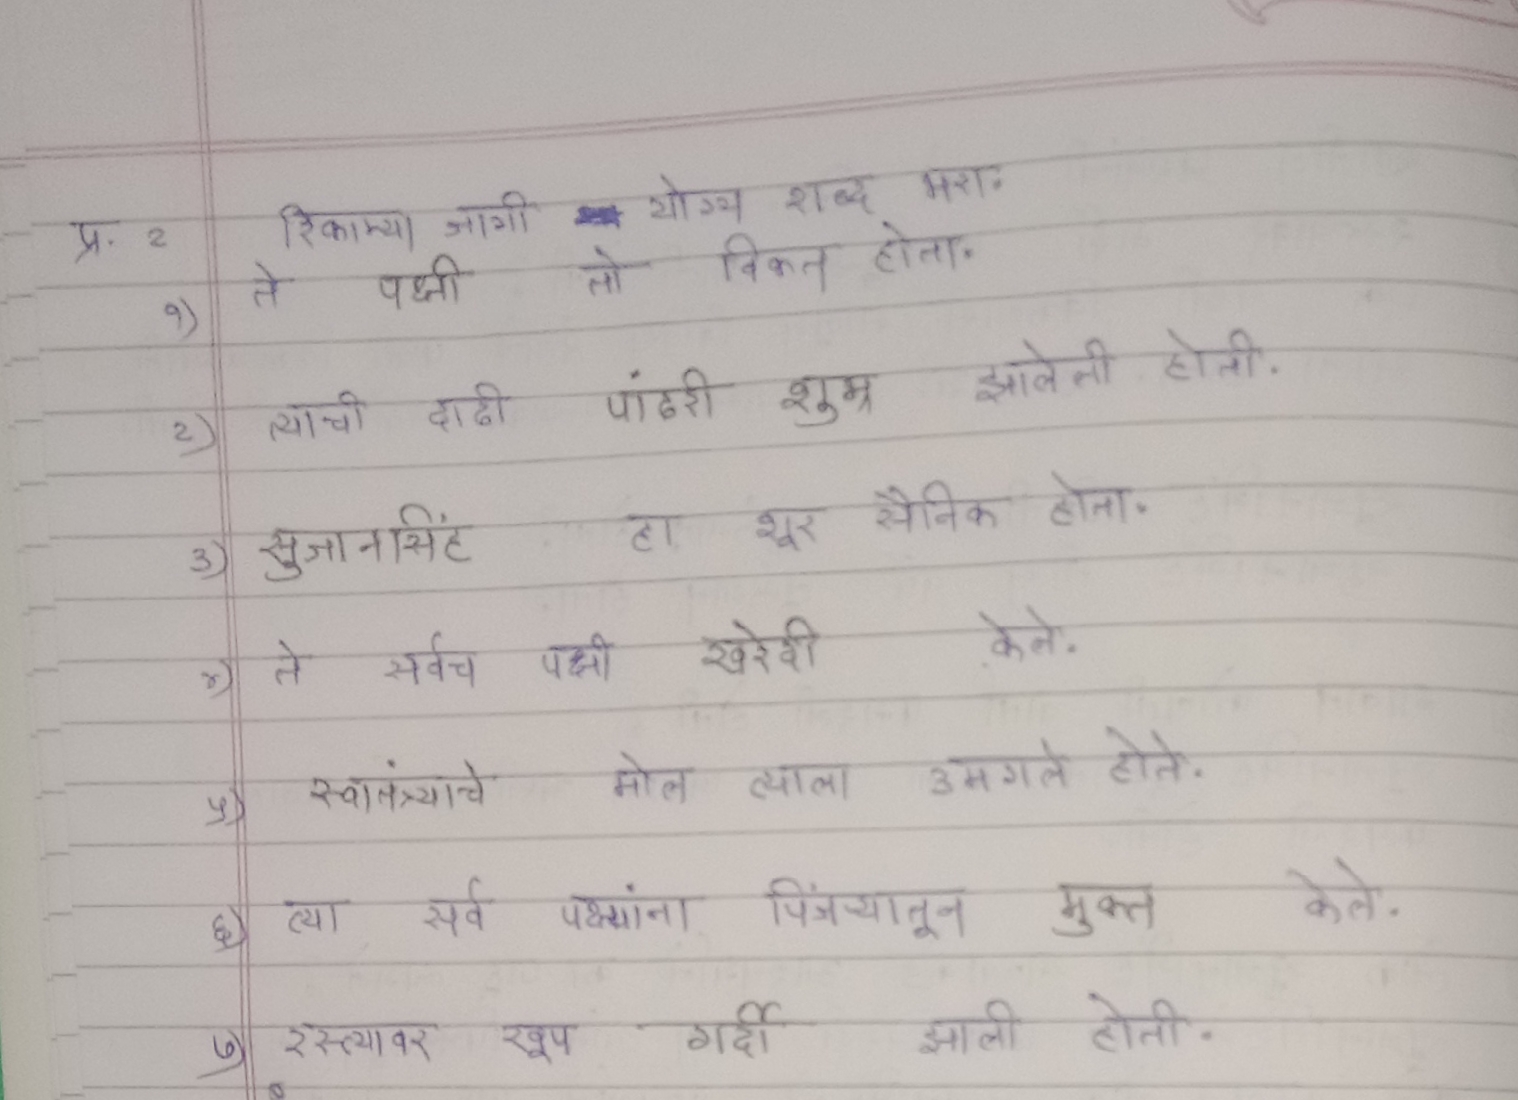 प्र. २ रिकाम्या जागी योग्य शब्द भरा.
१) ते पक्षी तो विकत होता.
२) त्याची दाढी पांढरी शुभ्र झालेली होती.
३) सुजानसिंह हा शूर सैनिक होता.
४) ते सर्वच पक्षी खरेदी केले.
५) स्वातंत्र्याचे मोल त्याला उमगले होते.
६) त्या सर्व पक्ष्यांना पिंजऱ्यातून मुक्त केले.
७) रस्त्यावर खूप गर्दी झाली होती.